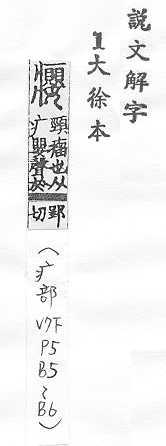 說文解字
1大徐本
癭
頸瘤也从
疒嬰聲於
郢
切
(疒部 V7下 P5 B5~B6)